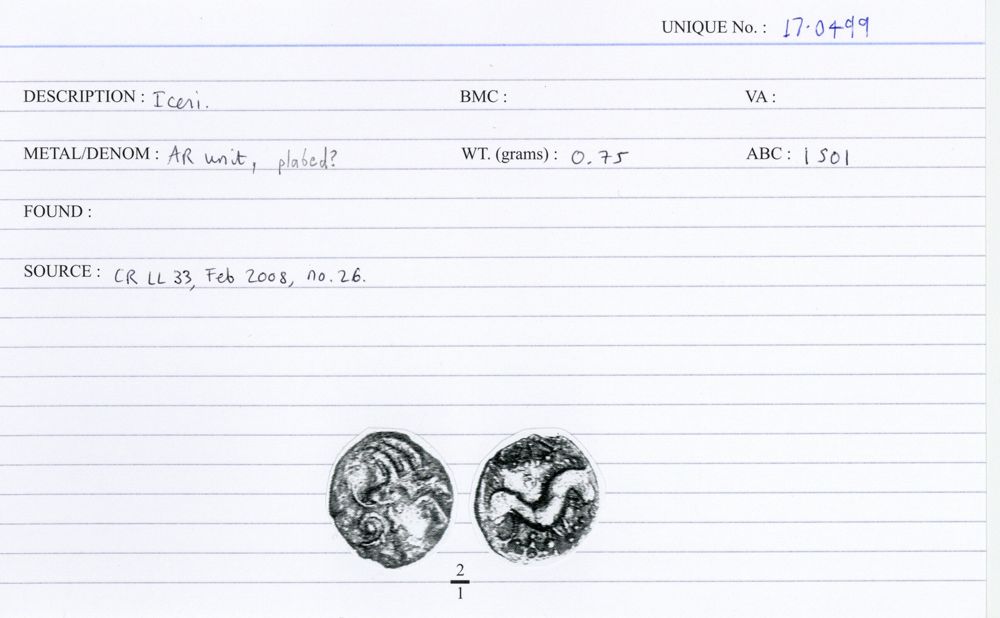 UNIQUE No. : 17.0499
DESCRIPTION : Iceni. BMC : VA :
METAL/DENOM : AR unit, plated? WT. (grams) : 0.75 ABC : 1501
FOUND :
SOURCE : CR LL 33, Feb 2008, no. 26.
2
1